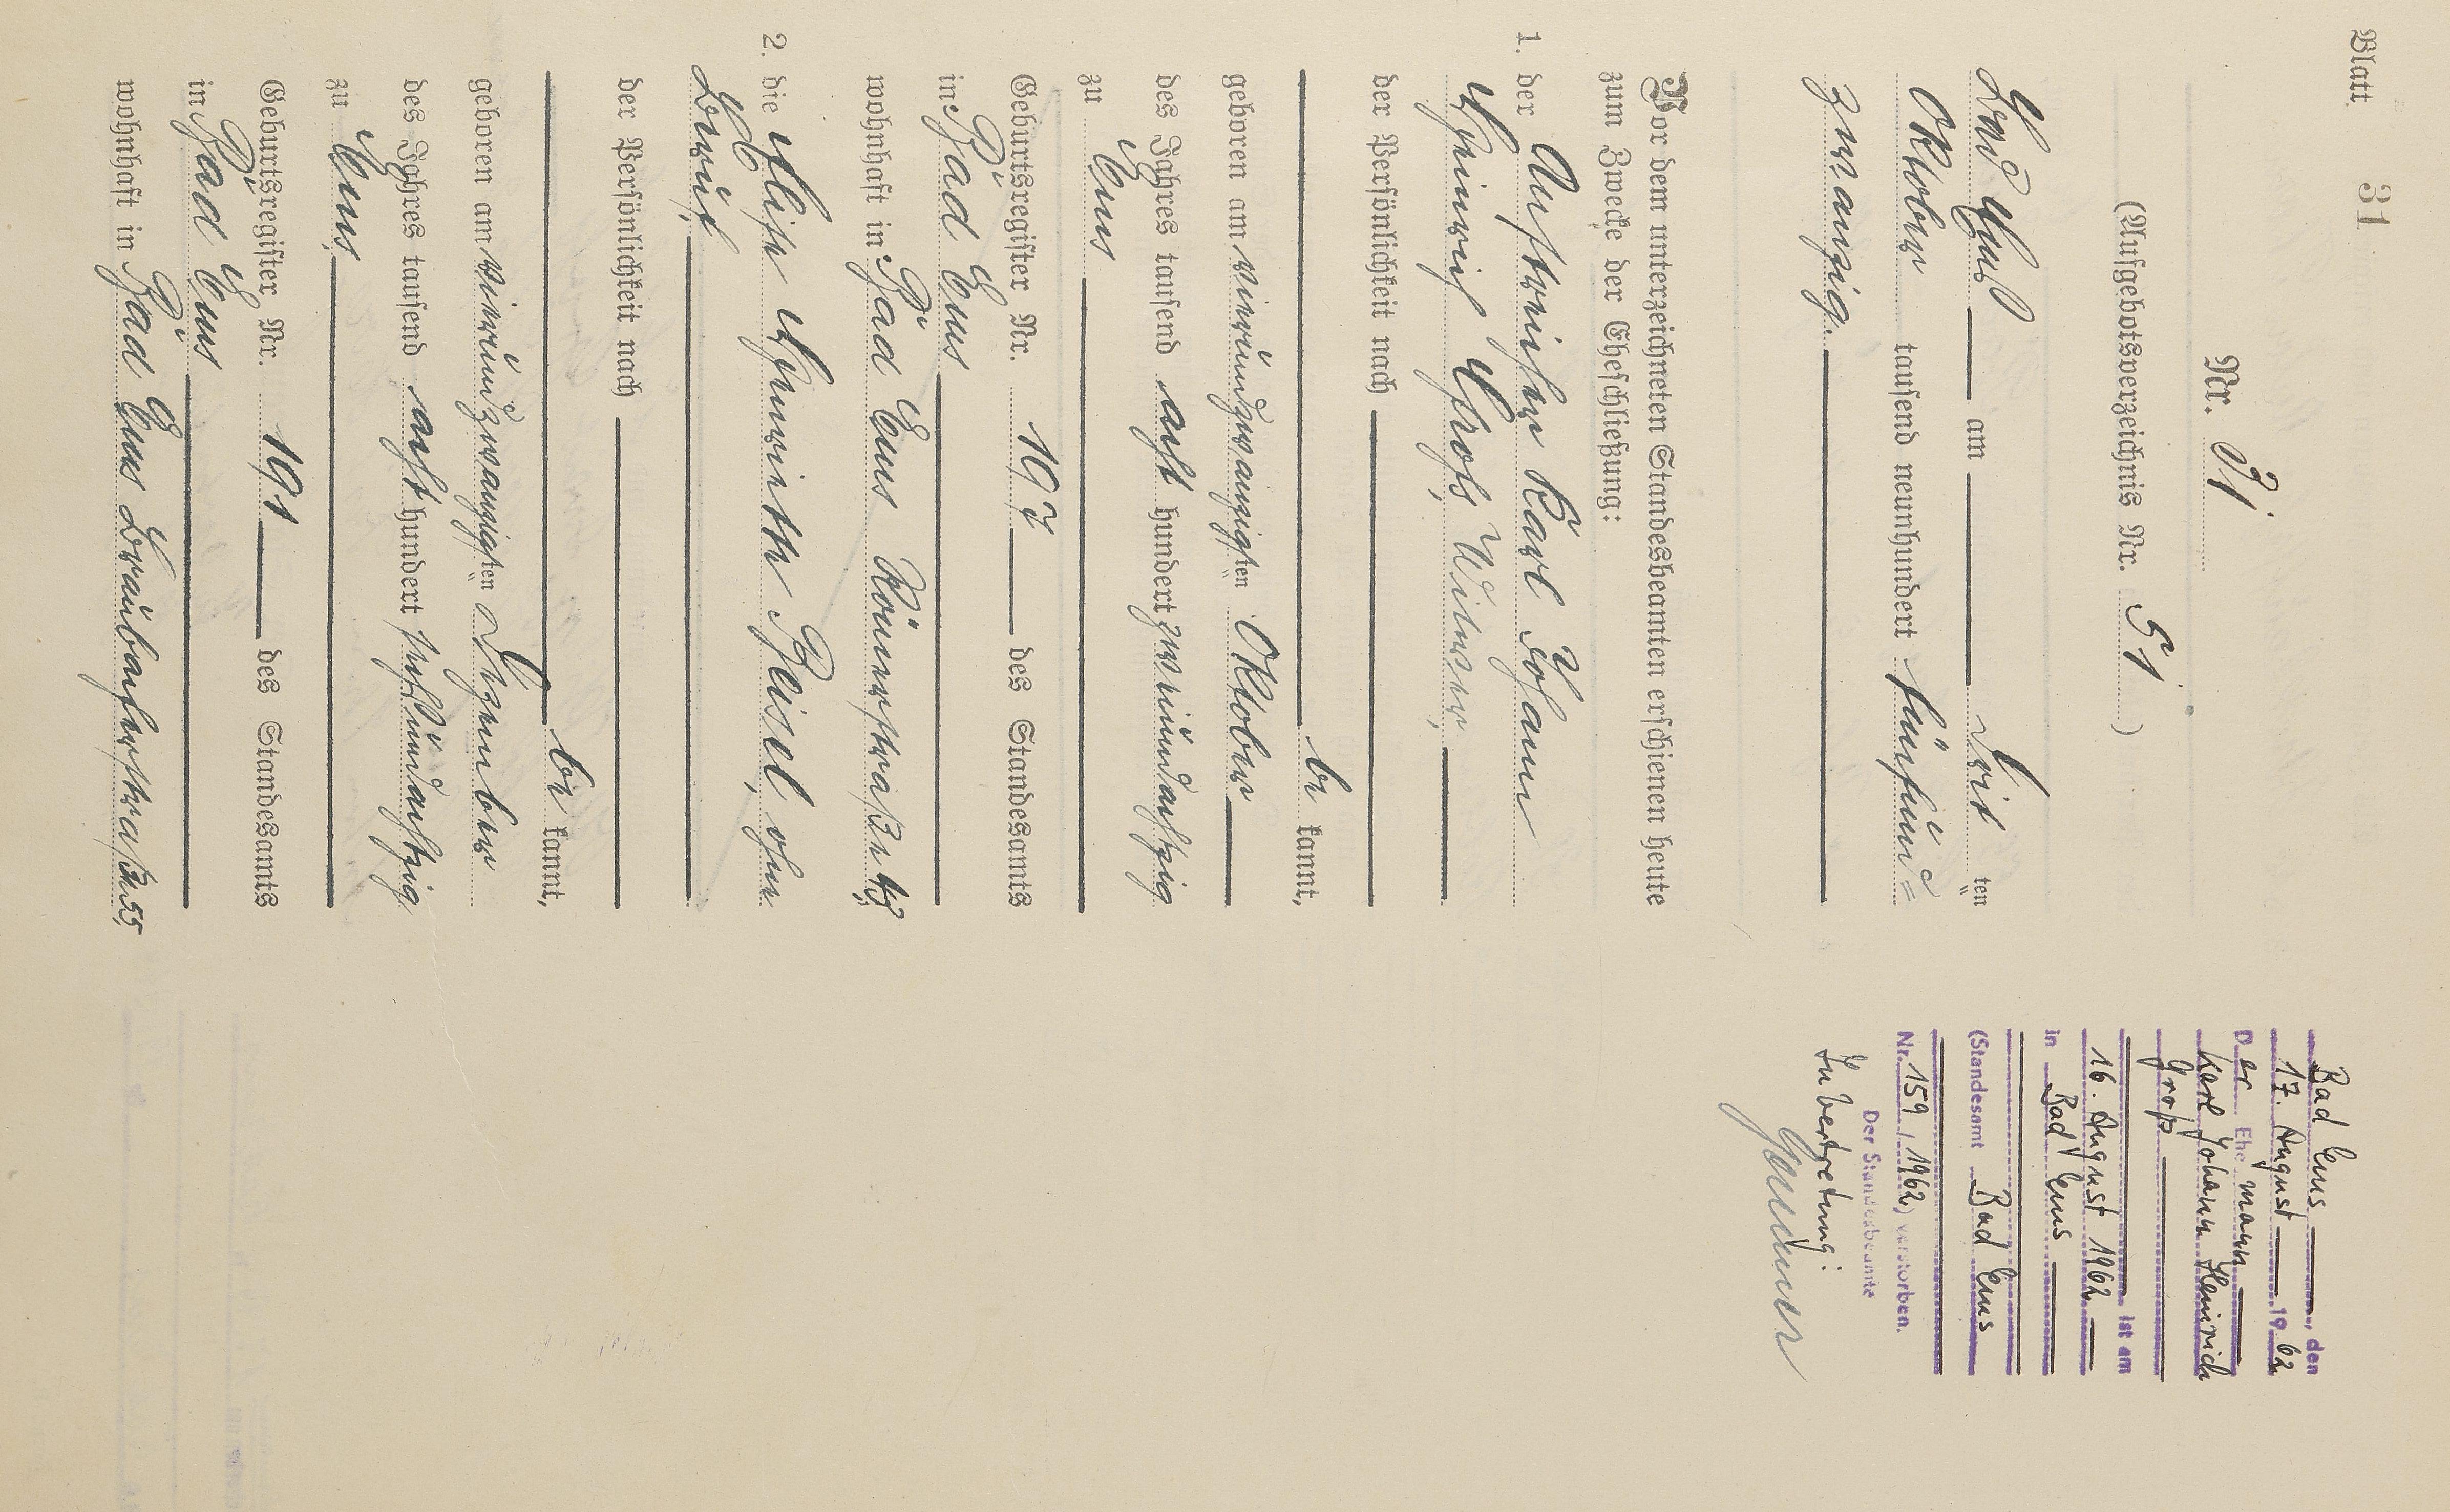 Blatt 31
Nr. 31.
(Aufgebotsverzeichnis Nr. 51)
Bad Ems am drit ten
Oktober tausend neunhundert fünfund=
zwanzig.
Vor dem unterzeichneten Standesbeamten erschienen heute
zum Zwecke der Eheschließung:
1. der Anstreicher Karl Johann
Heinrich Groß, Witwer,
der Persönlichkeit nach
be kannt,
geboren am vierundzwanzigsten Oktober
des Jahres tausend acht hundert zweiundachtzig
zu Ems
Geburtsregister Nr. 197 des Standesamts
in Bad Ems
wohnhaft in Bad Ems Römerstraße 43,
2. die Elise Henriette Beisel, ohne
Beruf,
der Persönlichkeit nach
be kannt,
geboren am vierundzwanzigsten Dezember
des Jahres tausend acht hundert sechsundachtzig
zu Ems,
Geburtsregister Nr. 191 des Standesamts
in Bad Ems
wohnhaft in Bad Ems Braubacherstraße 55,
Bad Ems, den
17. August 1962
Der Ehemann
Karl Johann Heinrich
Groß ist am
16. August 1962
in Bad Ems
(Standesamt Bad Ems
Nr. 159/1962) verstorben.
Der Standesbeamte
In Vertretung: